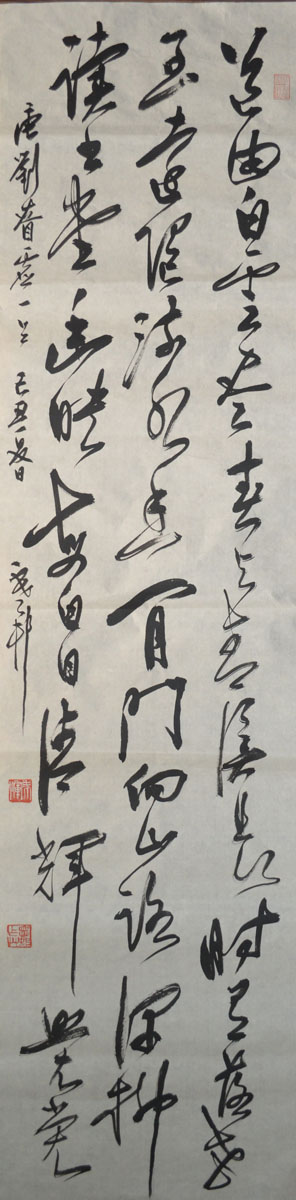 道由白雲盡春與青溪長時有落花
至遠隨流水香閒門向山路深柳
讀書堂幽映每白日清輝照衣裳
唐劉昚虛一首 己丑夏日